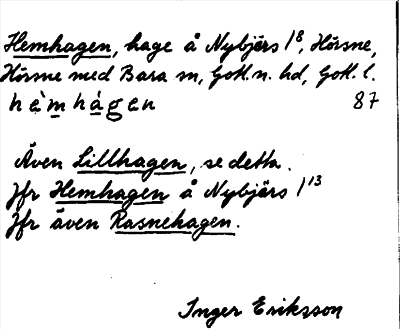 Hemhagen, hage å Nybjärs 1⁸, Hörsne,
Hörsne med Bara sn, Gotl. n. hd, Gotl. l.
hèmhágen 87
Även Lillhagen, se detta.
Jfr Hemhagen å Nybjärs 1¹³
Jfr även Rasnehagen.
Inger Eriksson